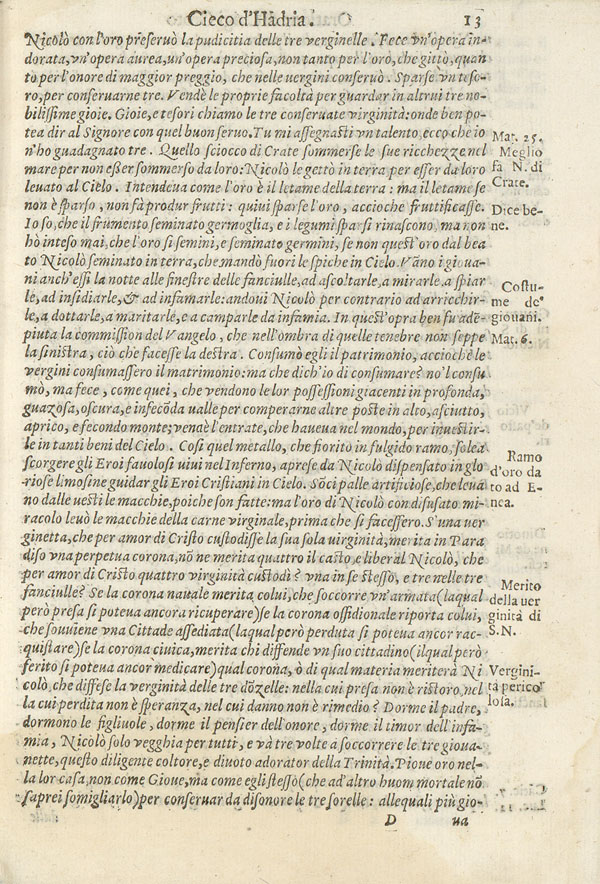 Cieco d'Hàdria. 13
Nicolò con l'oro preseruò la pudicitia delle tre verginelle. Fece vn'opera in-
dorata, vn'opera aurea, un'opera preciosa, non tanto per l'oro, che gittò, quan
to per l'onore di maggior preggio, che nelle uergini conseruò. Sparse vn teso-
ro, per conseruarne tre. Vendè le proprie facoltà per guardar in altrui tre no-
bilissime gioie. Gioie, e tesori chiamo le tre conseruate virginità: onde ben po-
tea dir al Signore con quel buon seruo. Tu mi assegnasti vn talento, ecco che io
n'ho guadagnato tre. Quello sciocco di Crate sommerse le sue ricchezze nel
mare per non esser sommerso da loro: Nicolò le gettò in terra per esser da loro
leuato al Cielo. Intendeua come l'oro è il letame della terra: ma il letame se
non è sparso, non fà produr frutti: quiui sparse l'oro, accioche fruttificasse.
Io so, che il frumento seminato germoglia, e i legumi sparsi rinascono, ma non
hò inteso mai, che l'oro si semini, e seminato germini, se non quest'oro dal bea
to Nicolò seminato in terra, che mandò fuori le spiche in Cielo. Vāno i gioua-
ni anch'essi la notte alle finestre delle fanciulle, ad ascoltarle, a mirarle, a spiar
le, ad insidiarle, & ad infamarle: andoui Nicolò per contrario ad arricchir-
le, a dottarle, a maritarle, e a camparle da infamia. In quest'opra ben fu adē-
piuta la commission del Vangelo, che nell'ombra di quelle tenebre non seppe
la sinistra, ciò che facesse la destra. Consumò egli il patrimonio, acciochè le
vergini consumassero il matrimonio: ma che dich'io di consumare? no'l consu
mò, ma fece, come quei, che vendono le lor possessioni giacenti in profonda,
guazosa, oscura, e infecōda ualle per comperarne altre poste in alto, asciutto,
aprico, e secondo monte; vendè l'entrate, che haueua nel mondo, per inuestir-
le in tanti beni del Cielo. Cosi quel metallo, che fiorito in fulgido ramo, solea
scorgere gli Eroi fauolosi uiui nel Inferno, aprese da Nicolò dispensato in glo
riose limosine guidar gli Eroi Cristiani in Cielo. Sōci palle artificiose, che leua
no dalle uesti le macchie, poiche son fatte: ma l'oro di Nicolò con disusato mi-
racolo leuò le macchie della carne virginale, prima che si facessero. S'una ver
ginetta, che per amor di Cristo custodisse la sua sola uirginità, merita in Para
diso vna perpetua corona, nō ne merita quattro il casto, e liberal Nicolò, che
per amor di Cristo quattro virginità custodì? vna in se stesso, e tre nelle tre
fanciulle? Se la corona nauale merita colui, che soccorre vn'armata (laqual
però presa si poteua ancora ricuperare) se la corona ossidionale riporta colui,
che souuiene vna Cittade assediata (laqual però perduta si poteua ancor rac-
quistare) se la corona ciuica, merita chi diffende vn suo cittadino (ilqual però
ferito si poteua ancor medicare) qual corona, ò di qual materia meriterà Ni
colò, che diffese la verginità delle tre dōzelle: nella cui presa non è ristoro, nel
la cui perdita non è speranza, nel cui danno non è rimedio? Dorme il padre,
dormono le figliuole, dorme il pensier dell'onore, dorme il timor dell'infa-
mia, Nicolò solo vegghia per tutti, e và tre volte a soccorrere le tre gioua-
nette, questo diligente coltore, e diuoto adorator della Trinità. Pioue oro nel-
la lor casa, non come Gioue, ma come egli stesso (che ad'altro huom mortale nō
saprei somigliarlo) per conseruar da disonore le tre sorelle: allequali più gio-
D ua
Mat. 25.
Meglio
fà N. di
Crate.
Dice be-
ne.
Costu-
me de'
giouani.
Mat. 6.
Ramo
d'oro da
to ad E-
nea.
Merito
della uer
ginità di
S. N.
Vergini-
tà perico
losa.